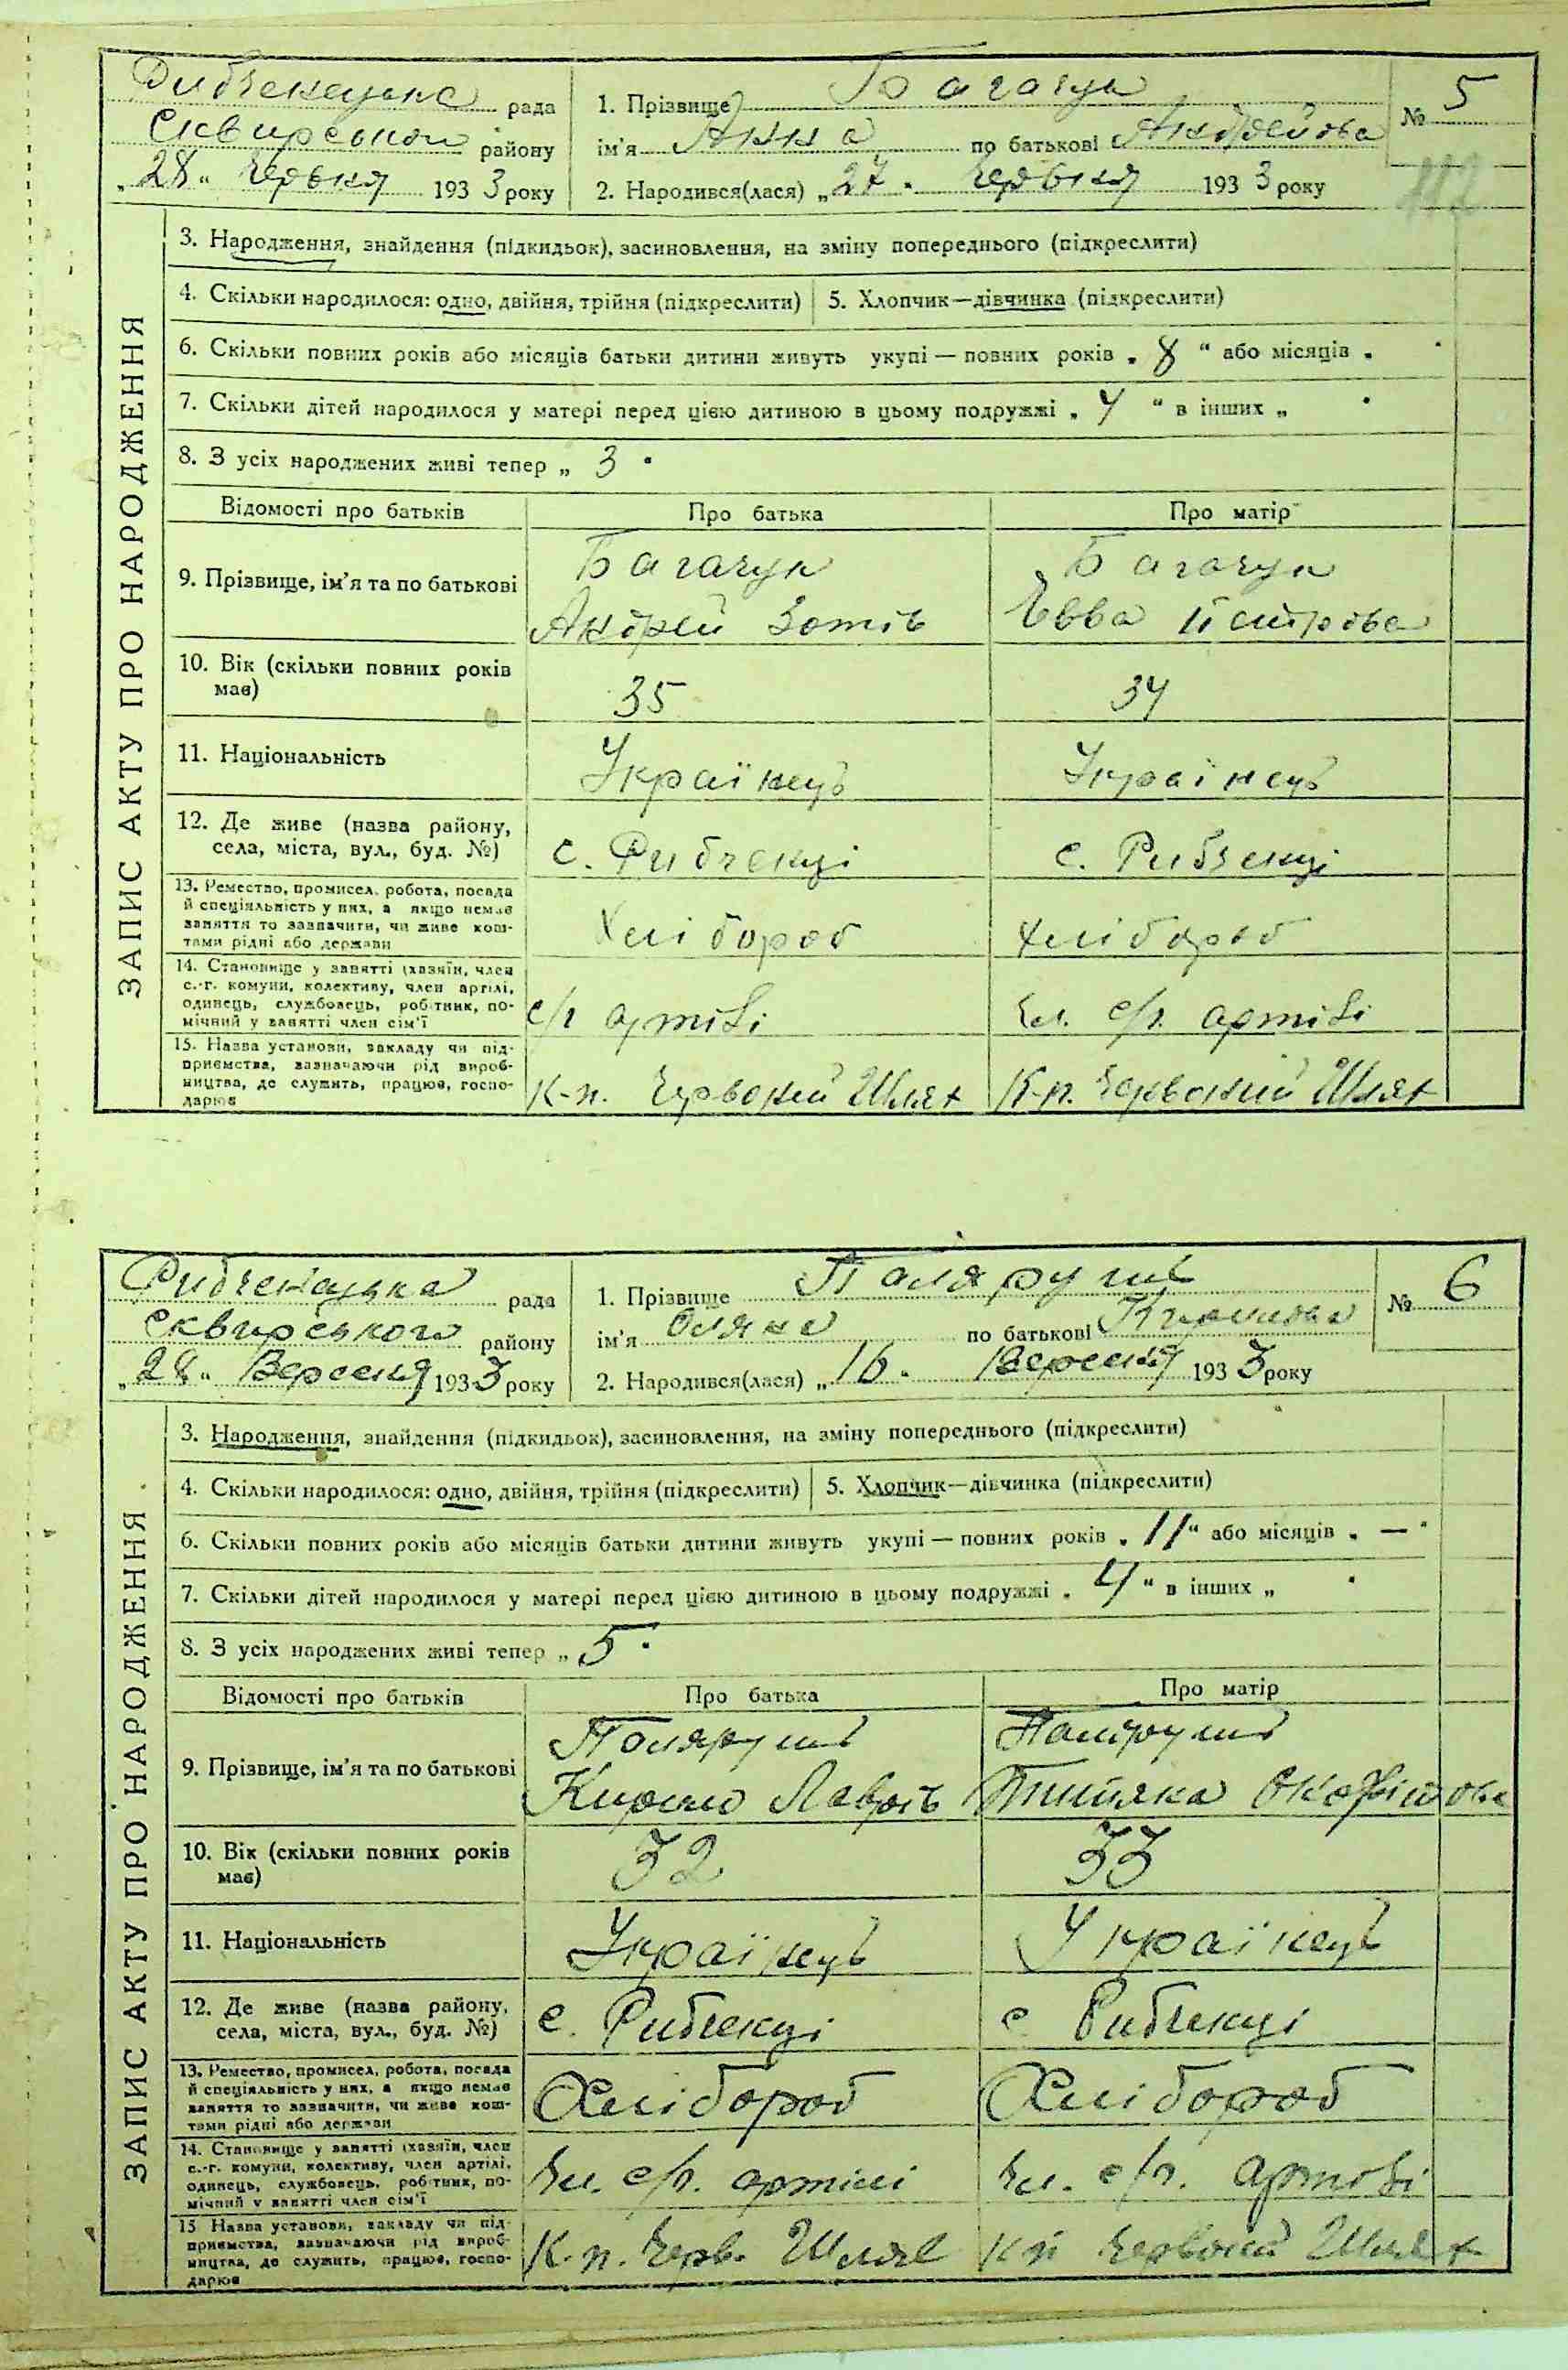 Рибченецька рада
Сквирського району
„28“ Червня 1933 року
1. Прізвище Багачук
ім'я Анна по батькові Андрейова
2. Народився(лася) „27“ Червня 1933 року
№ 5
3. Народження, знайдення (підкидьок), засиновлення, на зміну попереднього (підкреслити)
4. Скільки народилося: одно, двійня, трійня (підкреслити) 5. Хлопчик—дівчинка (підкреслити)
6. Скільки повних років або місяців батьки дитини живуть укупі — повних років „8“ або місяців „ “
7. Скільки дітей народилося у матері перед цією дитиною в цьому подружжі „4“ в інших „ “
8. З усіх народжених живі тепер „3“
Відомості про батьків Про батька Про матір
9. Прізвище, ім'я та по батькові
Багачук Багачук
Андрей Зотів Евва Петрова
10. Вік (скільки повних років має) 35 34
11. Національність Українець Українець
12. Де живе (назва району, села, міста, вул., буд. №) с. Рибченці с. Рибченці
13. Ремество, промисел, робота, посада й спеціяльність у них, а якщо немає заняття то зазначити, чи живе коштами рідні або держави
Хлібороб Хлібороб
14. Становище у занятті (хазяїн, член с.-г. комуни, колективу, член артілі, одинець, службовець, робітник, помічний у занятті член сім'ї
с/г артілі Чл. с/г. артілі
15. Назва установи, закладу чи підприємства, зазначаючи рід виробництва, де служить, працює, господарює
К-п. Червоний Шлях К-п. Червоний Шлях
ЗАПИС АКТУ ПРО НАРОДЖЕННЯ
Рибченецька рада
Сквирського району
„28“ Вересня 1933 року
1. Прізвище Поляруш
ім'я по батькові Кирилова
2. Народився(лася) „16“ Вересня 1933 року
№ 6
3. Народження, знайдення (підкидьок), засиновлення, на зміну попереднього (підкреслити)
4. Скільки народилося: одно, двійня, трійня (підкреслити) 5. Хлопчик—дівчинка (підкреслити)
6. Скільки повних років або місяців батьки дитини живуть укупі — повних років „11“ або місяців „—“
7. Скільки дітей народилося у матері перед цією дитиною в цьому подружжі „4“ в інших „ “
8. З усіх народжених живі тепер „5“
Відомості про батьків Про батька Про матір
9. Прізвище, ім'я та по батькові
Поляруш Поляруш
Кирило Лаврів
10. Вік (скільки повних років має) 32 33
11. Національність Українець Українець
12. Де живе (назва району, села, міста, вул., буд. №) с. Рибченці с. Рибченці
13. Ремество, промисел, робота, посада й спеціяльність у них, а якщо немає заняття то зазначити, чи живе коштами рідні або держави
Хлібороб Хлібороб
14. Становище у занятті (хазяїн, член с.-г. комуни, колективу, член артілі, одинець, службовець, робітник, помічний у занятті член сім'ї
Чл. с/г. артілі Чл. с/г. артілі
15. Назва установи, закладу чи підприємства, зазначаючи рід виробництва, де служить, працює, господарює
К-п. Черв. Шлях К-п Червоний Шлях
ЗАПИС АКТУ ПРО НАРОДЖЕННЯ